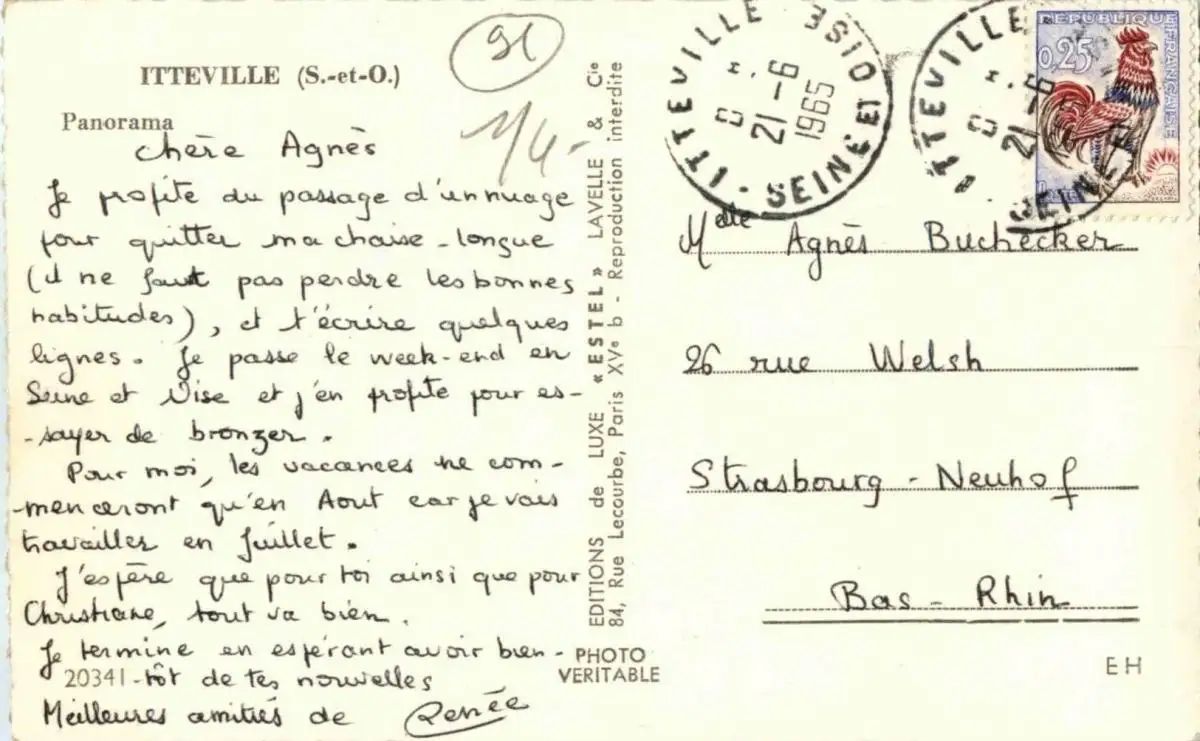 ITTEVILLE (S.-et-O.)
Panorama
91
1/4-
chère Agnès
Je profite du passage d'un nuage
pour quitter ma chaise-longue
(il ne faut pas perdre les bonnes
habitudes), et t'écrire quelques
lignes. Je passe le week-end en
Seine et Oise et j'en profite pour es-
-sayer de bronzer.
Pour moi, les vacances ne com-
-menceront qu'en Aout car je vais
travailler en Juillet.
J'espère que pour toi ainsi que pour
Christiane, tout va bien.
Je termine en espérant avoir bien-
20341 -tôt de tes nouvelles
Meilleures amitiés de Renée
EDITIONS de LUXE «ESTEL» LAVELLE & Cie
84, Rue Lecourbe, Paris XVe b - Reproduction interdite
PHOTO
VERITABLE
ITTEVILLE
21-6
1965
SEINE ET OISE
ITTEVILLE
21-6
SEINE
REPUBLIQUE
FRANÇAISE
0,25
Melle Agnès Buchecker
26 rue Welsh
Strasbourg - Neuhof
Bas - Rhin
EH